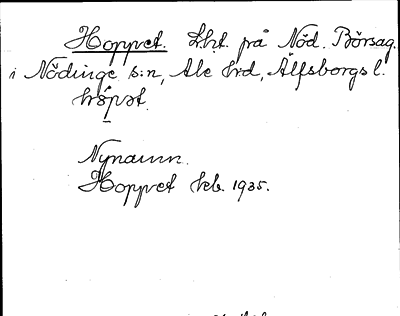 Hoppvet. Lht. på Nöd. Börsag.
i Nödinge s:n, Ale hrd, Älfsborgs l.
Nynamn.
Hoppvet heb. 1935.